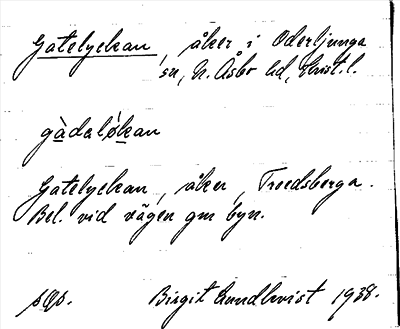 Gatelyckan, åker i Oderljunga
sn, N. Åsbo hd, Krist. l.
gàdalo̍kan
Gatelyckan, åker, Troedsberga.
Bel. vid vägen gm byn.
Birgit Lundkvist 1938.